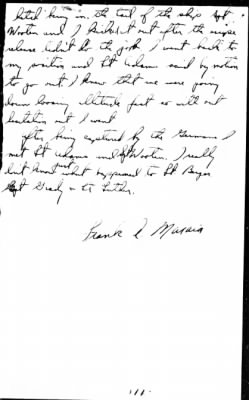 being in the tail of the ship Sgt
Wooten and I kicked it out after the
release didn't do the job. I went back to
my position and Lt Adams said by motion
to go out. I knew that we were going
down losing altitude fast so with out
hesitation out I went
After being captured by the Germans I
met Lt Adams and Sgt Wooten. I really
don't know just what happened to Lt
Sgt Grady or Lt
Frank